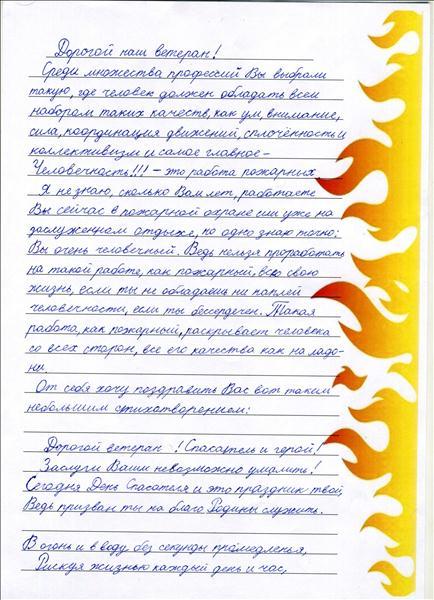 Дорогой наш ветеран!
Среди множества профессий Вы выбрали
такую, где человек должен обладать всем
набором таких качеств, как ум, внимание,
сила, координация движений, сплочённость и
коллективизм и самое главное -
Человечность!!! - это работа пожарных.
Я не знаю, сколько Вам лет, работаете
Вы сейчас в пожарной охране или уже на
заслуженном отдыхе, но одно знаю точно:
Вы очень человечный. Ведь нельзя проработать
на такой работе, как пожарный, всю свою
жизнь, если ты не обладаешь ни каплей
человечности, если ты бессердечен. Такая
работа, как пожарный, раскрывает человека
со всех сторон, все его качества как на ладо-
ни.
От себя хочу поздравить Вас вот таким
небольшим стихотворением:
Дорогой ветеран ! Спасатель и герой!
Заслуги Ваши невозможно умалить!
Сегодня День Спасателя и это праздник твой,
Ведь призван ты на благо Родины служить.
В огонь и в воду без секунды промедленья,
Рискуя жизнью каждый день и час,